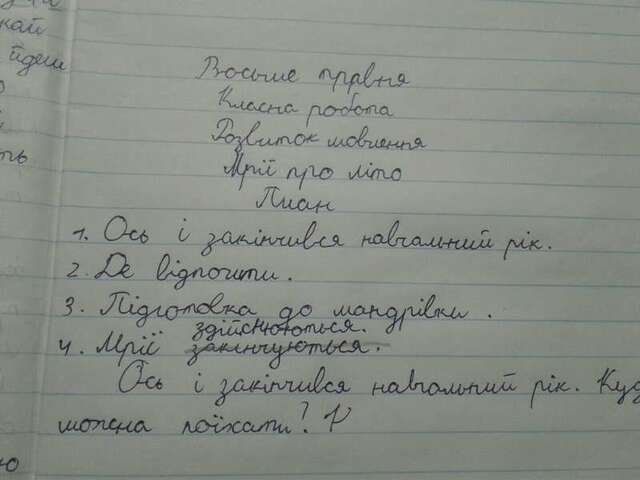 кай
йдеш
ть
Восьме травня
Класна робота
Розвиток мовлення
Мрії про літо
План
1. Ось і закінчився навчальний рік.
2. Де відпочити.
3. Підготовка до мандрівки.
здійснюються.
4. Мрії закінчуються.
Ось і закінчився навчальний рік. Куд
можна поїхати?
ю